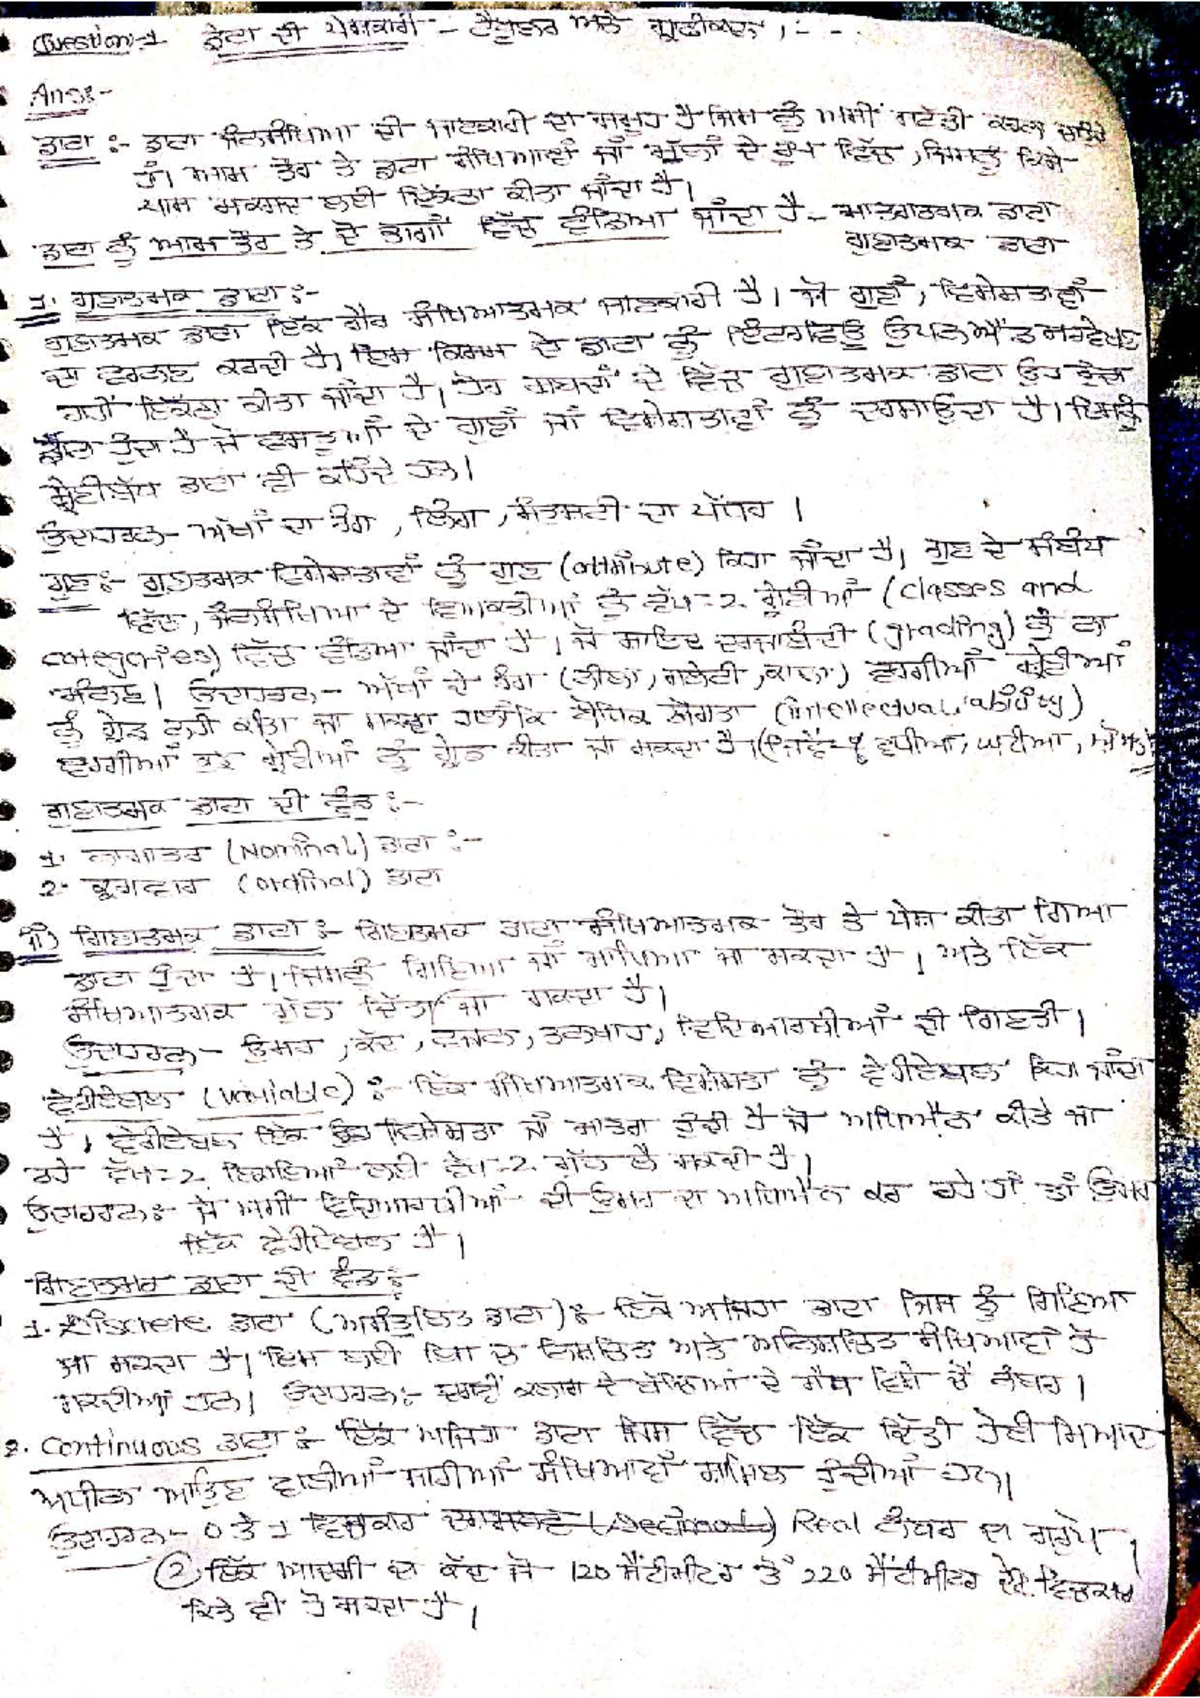 Question:-1 ਡੇਟਾ ਦੀ ਪੇਸ਼ਕਾਰੀ - ਟੈਬੂਲਰ ਅਤੇ ਗ੍ਰਾਫੀਕਲ ।- - .
Ans:-
ਡਾਟਾ :- ਡਾਟਾ ਜਾਣਕਾਰੀ ਦਾ ਸਮੂਹ ਹੈ ਜਿਸ ਨੂੰ ਅਸੀਂ
ਹਾਂ। ਆਮ ਤੌਰ ਤੇ ਡਾਟਾ ਸੰਖਿਆਵਾਂ ਜਾਂ ਮੁੱਲਾਂ ਦੇ ਰੂਪ ਵਿੱਚ, ਜਿਸਨੂੰ ਕਿਸੇ
ਖਾਸ ਮਕਸਦ ਲਈ ਇਕੱਠਾ ਕੀਤਾ ਜਾਂਦਾ ਹੈ।
ਡਾਟਾ ਨੂੰ ਆਮ ਤੌਰ ਤੇ ਦੋ ਭਾਗਾਂ ਵਿੱਚ ਵੰਡਿਆ ਜਾਂਦਾ ਹੈ - ਡਾਟਾ
ਗੁਣਾਤਮਕ ਡਾਟਾ
1. ਗੁਣਾਤਮਕ ਡਾਟਾ :-
ਗੁਣਾਤਮਕ ਡਾਟਾ ਇੱਕ ਗੈਰ ਸੰਖਿਆਤਮਕ ਜਾਣਕਾਰੀ ਹੈ। ਜੋ ਗੁਣਾਂ, ਵਿਸ਼ੇਸ਼ਤਾਵਾਂ
ਦਾ ਵਰਣਨ ਕਰਦੀ ਹੈ। ਇਸ ਕਿਸਮ ਦੇ ਡਾਟਾ ਨੂੰ ਇੰਟਰਵਿਊ
ਰਾਹੀਂ ਇਕੱਠਾ ਕੀਤਾ ਜਾਂਦਾ ਹੈ। ਹੋਰ ਸ਼ਬਦਾਂ ਦੇ ਵਿੱਚ ਗੁਣਾਤਮਕ ਡਾਟਾ ਉਹ
ਹੁੰਦਾ ਹੈ ਜੋ ਵਸਤੂਆਂ ਦੇ ਗੁਣਾਂ ਜਾਂ ਵਿਸ਼ੇਸ਼ਤਾਵਾਂ ਨੂੰ ਦਰਸਾਉਂਦਾ ਹੈ। ਇਸਨੂੰ
ਸ਼੍ਰੇਣੀਬੱਧ ਡਾਟਾ ਵੀ ਕਹਿੰਦੇ ਹਨ।
ਉਦਾਹਰਨ - ਅੱਖਾਂ ਦਾ ਰੰਗ, ਲਿੰਗ, ਸੰਤੁਸ਼ਟੀ ਦਾ ਪੱਧਰ ।
ਗੁਣ:- ਗੁਣਾਤਮਕ ਵਿਸ਼ੇਸ਼ਤਾਵਾਂ ਨੂੰ ਗੁਣ (attribute) ਕਿਹਾ ਜਾਂਦਾ ਹੈ। ਗੁਣ ਦੇ ਸੰਬੰਧ
ਵਿੱਚ, ਜਨਸੰਖਿਆ ਦੇ ਵਿਅਕਤੀਆਂ ਨੂੰ ਵੱਖ-2 ਸ਼੍ਰੇਣੀਆਂ (classes and
categories) ਵਿੱਚ ਵੰਡਿਆ ਜਾਂਦਾ ਹੈ। ਜੋ ਸ਼ਾਇਦ ਦਰਜਾਬੰਦੀ (grading) ਨੂੰ ਨਾ
ਮੰਨਣ। ਉਦਾਹਰਨ - ਅੱਖਾਂ ਦੇ ਰੰਗ (ਨੀਲਾ, ਸਲੇਟੀ, ਕਾਲਾ) ਵਰਗੀਆਂ ਸ਼੍ਰੇਣੀਆਂ
ਨੂੰ ਗ੍ਰੇਡ ਨਹੀਂ ਕੀਤਾ ਜਾ ਸਕਦਾ ਹਾਲਾਂਕਿ ਬੌਧਿਕ ਯੋਗਤਾ (intellectual ability)
ਵਰਗੀਆਂ ਕੁਝ ਸ਼੍ਰੇਣੀਆਂ ਨੂੰ ਗ੍ਰੇਡ ਕੀਤਾ ਜਾ ਸਕਦਾ ਹੈ। ਵਧੀਆ, ਘਟੀਆ,
ਗੁਣਾਤਮਕ ਡਾਟਾ ਦੀ ਵੰਡ :-
1. (Nominal) ਡਾਟਾ :-
2. ਕ੍ਰਮਵਾਰ (ordinal) ਡਾਟਾ
ii) ਗਿਣਾਤਮਕ ਡਾਟਾ :- ਗਿਣਾਤਮਕ ਡਾਟਾ ਸੰਖਿਆਤਮਕ ਤੌਰ ਤੇ ਪੇਸ਼ ਕੀਤਾ ਗਿਆ
ਡਾਟਾ ਹੁੰਦਾ ਹੈ। ਜਿਸਨੂੰ ਗਿਣਿਆ ਜਾਂ ਮਾਪਿਆ ਜਾ ਸਕਦਾ ਹੈ। ਅਤੇ ਇੱਕ
ਸੰਖਿਆਤਮਕ ਮੁੱਲ ਦਿੱਤਾ ਜਾ ਸਕਦਾ ਹੈ।
ਉਦਾਹਰਨ - ਉਮਰ, ਕੱਦ, ਵਜਨ, ਤਨਖਾਹ, ਵਿਦਿਆਰਥੀਆਂ ਦੀ ਗਿਣਤੀ।
ਵੇਰੀਏਬਲ (variable) :- ਇੱਕ ਸੰਖਿਆਤਮਕ ਵਿਸ਼ੇਸ਼ਤਾ ਨੂੰ ਵੇਰੀਏਬਲ ਕਿਹਾ ਜਾਂਦਾ
ਹੈ, ਵੇਰੀਏਬਲ ਇੱਕ ਉਹ ਵਿਸ਼ੇਸ਼ਤਾ ਜਾਂ ਮਾਤਰਾ ਹੁੰਦੀ ਹੈ ਜੋ ਅਧਿਐਨ ਕੀਤੇ ਜਾ
ਰਹੇ ਵੱਖ-2 ਲਈ ਵੱਖ-2 ਮੁੱਲ ਲੈ ਸਕਦੀ ਹੈ।
ਉਦਾਹਰਨ:- ਜੇ ਅਸੀਂ ਵਿਦਿਆਰਥੀਆਂ ਦੀ ਉਮਰ ਦਾ ਅਧਿਐਨ ਕਰ ਰਹੇ ਹਾਂ ਤਾਂ ਉਮਰ
ਇੱਕ ਵੇਰੀਏਬਲ ਹੈ।
ਗਿਣਾਤਮਕ ਡਾਟਾ ਦੀ ਵੰਡ:-
1. Discrete ਡਾਟਾ :- ਇੱਕ ਅਜਿਹਾ ਡਾਟਾ ਜਿਸ ਨੂੰ ਗਿਣਿਆ
ਜਾ ਸਕਦਾ ਹੈ। ਇਸ ਲਈ ਅਤੇ ਸੰਖਿਆਵਾਂ ਹੋ
ਸਕਦੀਆਂ ਹਨ। ਉਦਾਹਰਨ:- ਦਸਵੀਂ ਕਲਾਸ ਦੇ ਬੱਚਿਆਂ ਦੇ ਵਿਸ਼ੇ ਚੋਂ ਨੰਬਰ।
2. Continuous ਡਾਟਾ :- ਇੱਕ ਅਜਿਹਾ ਡਾਟਾ ਜਿਸ ਵਿੱਚ ਇੱਕ ਦਿੱਤੀ ਹੋਈ ਮਿਆਦ
ਅਧੀਨ ਆਉਣ ਵਾਲੀਆਂ ਸਾਰੀਆਂ ਸੰਖਿਆਵਾਂ ਸ਼ਾਮਿਲ ਹੁੰਦੀਆਂ ਹਨ।
ਉਦਾਹਰਨ - 0 ਤੇ 1 ਵਿਚਕਾਰ Real ਨੰਬਰ ਦਾ ਗਰੁੱਪ।
② ਇੱਕ ਆਦਮੀ ਦਾ ਕੱਦ ਜੋ 120 ਸੈਂਟੀਮੀਟਰ ਤੋਂ 220 ਸੈਂਟੀਮੀਟਰ ਦੇ ਵਿਚਕਾਰ
ਕਿਤੇ ਵੀ ਹੋ ਸਕਦਾ ਹੈ।